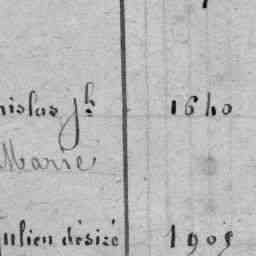 nislas jh 1640
Marie
ulien désiré 1905